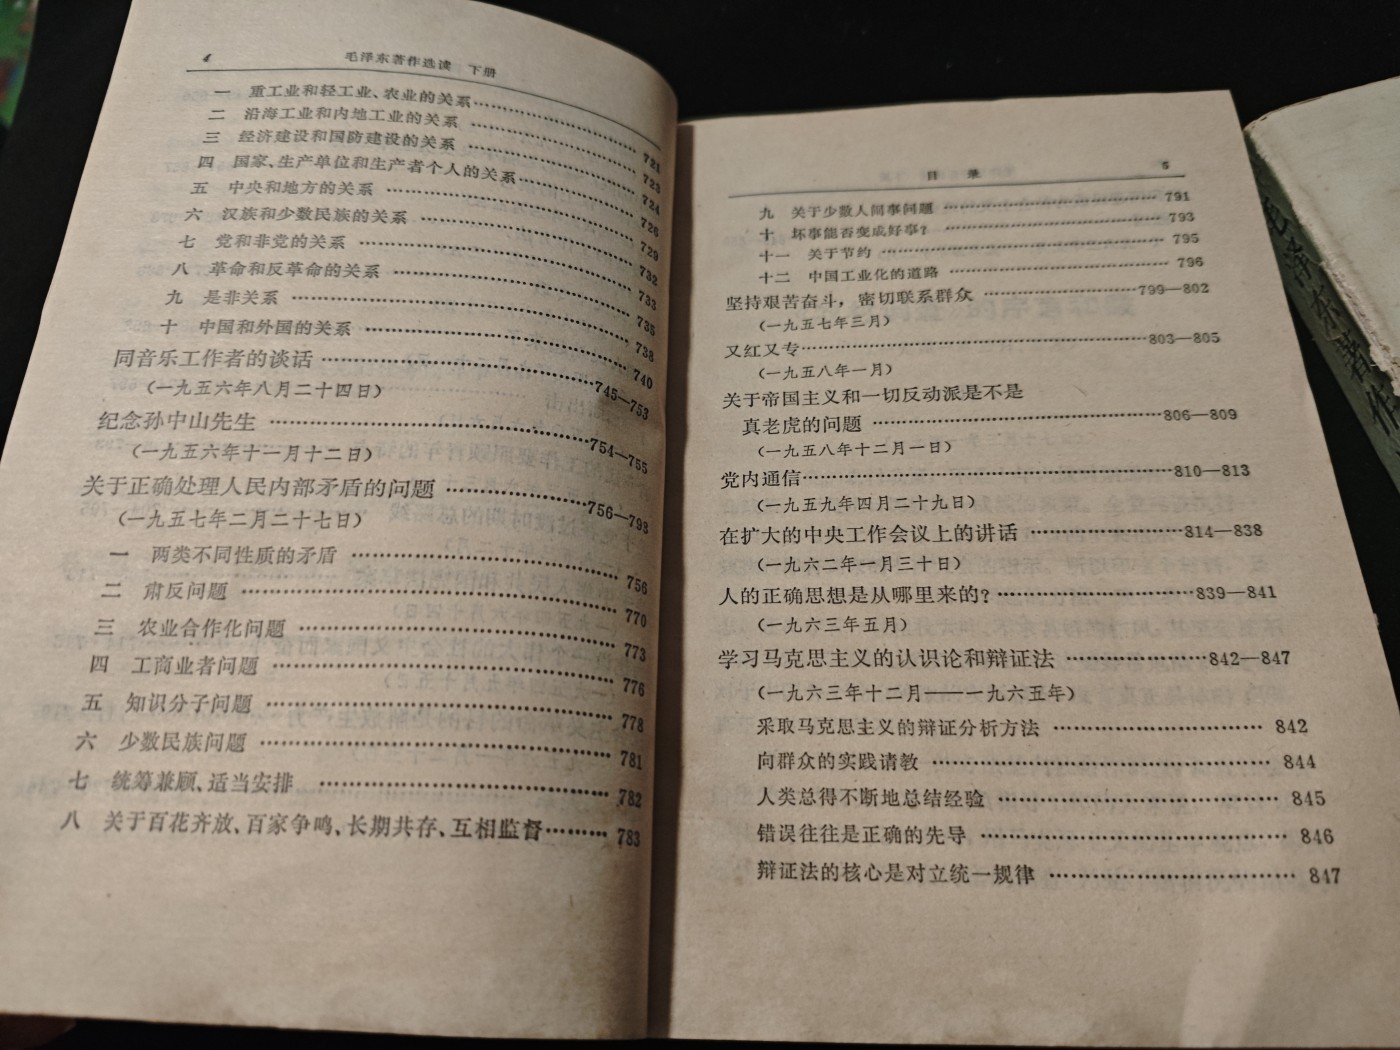 4 毛泽东著作选读 下册
一 重工业和轻工业、农业的关系…………………… 721
二 沿海工业和内地工业的关系 …………………… 723
三 经济建设和国防建设的关系 …………………… 724
四 国家、生产单位和生产者个人的关系…………… 726
五 中央和地方的关系 …………………… 729
六 汉族和少数民族的关系 …………………… 732
七 党和非党的关系 …………………… 733
八 革命和反革命的关系 …………………… 735
九 是非关系 …………………… 738
十 中国和外国的关系 …………………… 740
同音乐工作者的谈话 …………………… 745—753
(一九五六年八月二十四日)
纪念孙中山先生 …………………… 754—755
(一九五六年十一月十二日)
关于正确处理人民内部矛盾的问题 …………… 756—798
(一九五七年二月二十七日)
一 两类不同性质的矛盾 …………………… 756
二 肃反问题 …………………… 770
三 农业合作化问题 …………………… 773
四 工商业者问题 …………………… 776
五 知识分子问题 …………………… 778
六 少数民族问题 …………………… 781
七 统筹兼顾、适当安排 …………………… 782
八 关于百花齐放、百家争鸣、长期共存、互相监督……… 783
目 录 5
九 关于少数人闹事问题 …………………… 791
十 坏事能否变成好事? …………………… 793
十一 关于节约 …………………… 795
十二 中国工业化的道路 …………………… 796
坚持艰苦奋斗,密切联系群众 …………… 799—802
(一九五七年三月)
又红又专…………………… 803—805
(一九五八年一月)
关于帝国主义和一切反动派是不是
真老虎的问题 …………………… 806—809
(一九五八年十二月一日)
党内通信…………………… 810—813
(一九五九年四月二十九日)
在扩大的中央工作会议上的讲话 …………… 814—838
(一九六二年一月三十日)
人的正确思想是从哪里来的?…………… 839—841
(一九六三年五月)
学习马克思主义的认识论和辩证法 ………… 842—847
(一九六三年十二月——一九六五年)
采取马克思主义的辩证分析方法 …………… 842
向群众的实践请教 …………………… 844
人类总得不断地总结经验 …………………… 845
错误往往是正确的先导 …………………… 846
辩证法的核心是对立统一规律 …………… 847
毛泽东著作